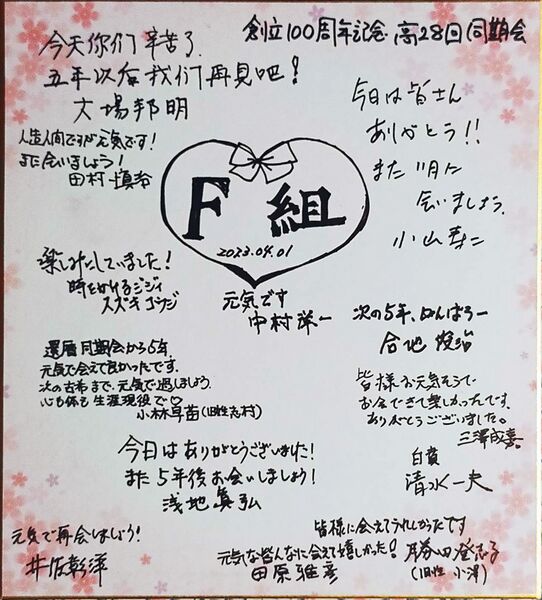 創立100周年記念 高28回同期会
今天你们辛苦了
五年以后我们再見吧!
大場邦明
人造人間ですが元気です!
また会いましょう!
田村
今日は皆さん
ありがとう!!
また11月に
会いましょう。
小山寿二
F組
2023.04.01
楽しみにしていました!
時をかけるジジイ
スズキコウジ
元気です
中村洋一
次の5年、がんばろー
合地俊治
還暦同期会から5年
元気で会えて良かったです。
次の古希まで、元気で過しましょう
心も体も生涯現役で♡
小林早苗(旧姓志村)
皆様お元気そうで
お会いできて楽しかったです。
ありがとうございました。
三澤成喜
今日はありがとうございました!
また5年後お会いしましょう!
浅地眞弘
清水一夫
元気で再会しましょう!
井坂彰洋
元気な皆んなに会えて嬉しかった!
田原雅彦
皆様に会えてうれしかったです
勝田登志子
(旧姓 小澤)